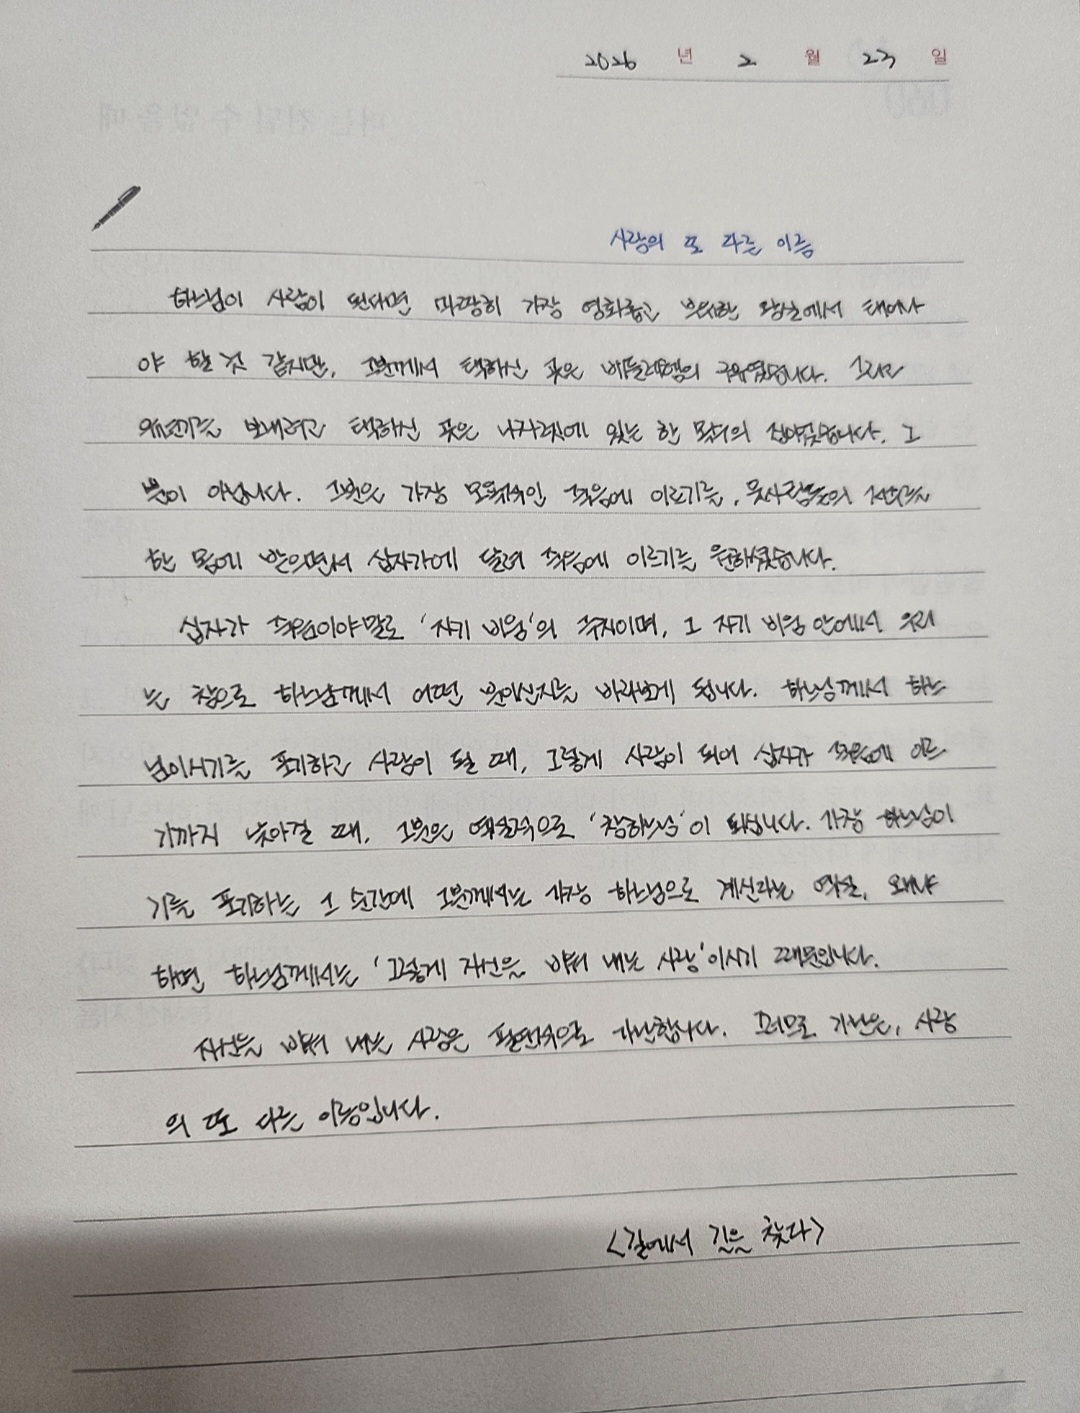 2026 년 2 월 23 일
사랑의 또 다른 이름
하느님이 사람이 된다면 마땅히 가장 영화롭고 부유한 왕실에서 태어나
야 할 것 같지만, 그분께서 택하신 곳은 베들레헴의 구유였습니다. 그리고
유년기를 보내려고 택하신 곳은 나자렛에 있는 한 목수의 집이었습니다. 그
뿐이 아닙니다. 그분은 가장 모욕적인 죽음에 이르기를, 뭇사람들의 저주를
한 몸에 받으면서 십자가에 달려 죽음에 이르기를 원하셨습니다.
십자가 죽음이야말로 '자기 비움'의 극치이며, 그 자기 비움 안에서 우리
는 참으로 하느님께서 어떤 분이신지를 바라보게 됩니다. 하느님께서 하느
님이시기를 포기하고 사람이 될 때, 그렇게 사람이 되어 십자가 죽음에 이르
기까지 낮아질 때, 그분은 역설적으로 '참하느님'이 되십니다. 가장 하느님이
기를 포기하는 그 순간에 그분께서는 가장 하느님으로 계신다는 역설, 왜냐
하면 하느님께서는 '그렇게 자신을 비워 내는 사랑'이시기 때문입니다.
자신을 비워 내는 사랑은 필연적으로 가난합니다. 그러므로 가난은, 사랑
의 또 다른 이름입니다.
<길에서 길을 찾다>